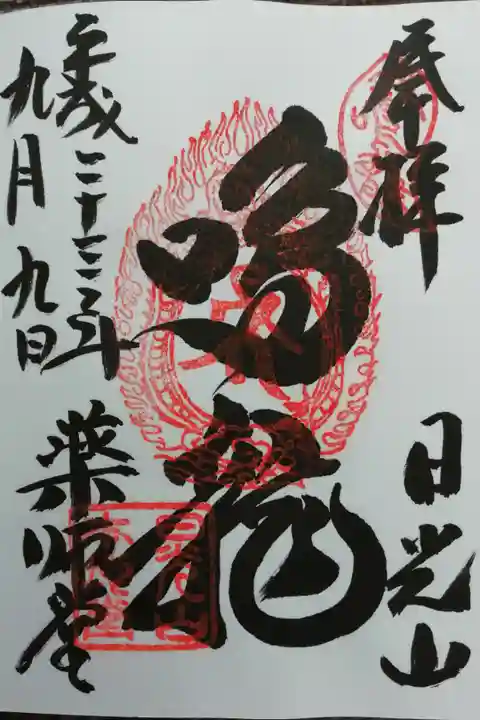 奉拝
日光山
鳴龍
平成二十三年
九月九日
薬師堂